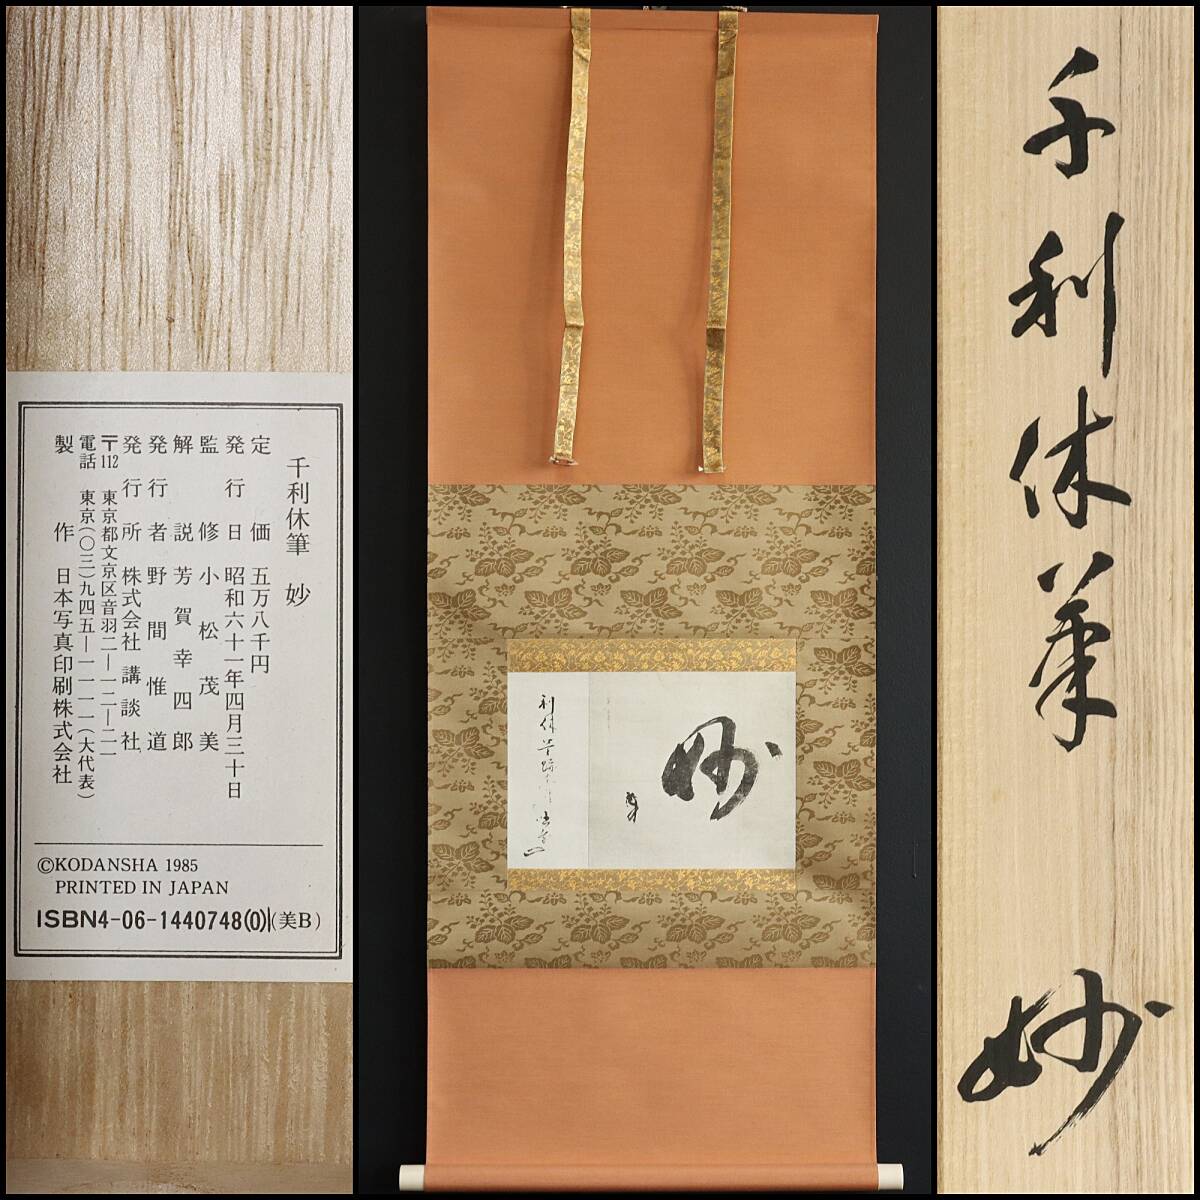 千利休筆　妙
定価　五万八千円
発行日　昭和六十一年四月三十日
監修　小松茂美
解説　芳賀幸四郎
発行者　野間惟道
発行所　株式会社講談社
〒112　東京都文京区音羽二―一二―二一
電話　東京(〇三)九四五―一一一一(大代表)
製作　日本写真印刷株式会社
©KODANSHA 1985
PRINTED IN JAPAN
ISBN4-06-1440748(0)(美B)
妙
利休
千利休筆　妙